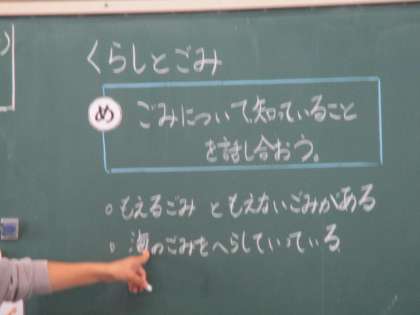 くらしとごみ
め
ごみについて、知っていること
を話し合おう。
○もえるごみ ともえないごみがある
○ 海のごみをへらしていっている